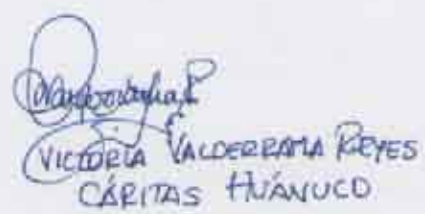 VICTORIA VALDERRAMA REYES
CÁRITAS HUÁNUCO